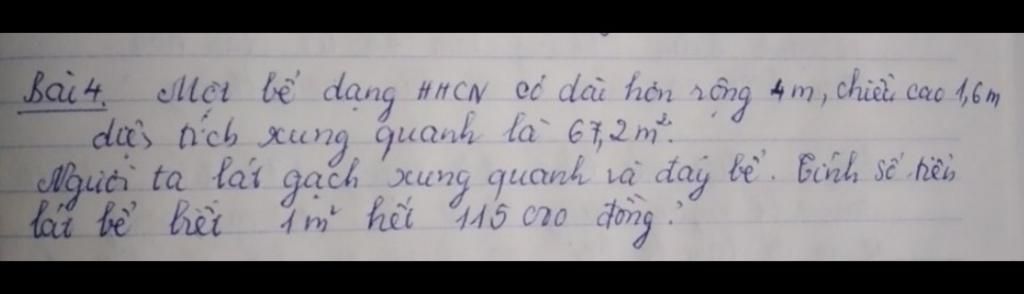 Bài 4. Một bể dạng HHCN có dài hơn rộng 4m, chiều cao 1,6m
diện tích xung quanh là 67,2m².
Người ta lát gạch xung quanh và đáy bể. Tính số tiền
lát bể biết 1m² hết 115 000 đồng?